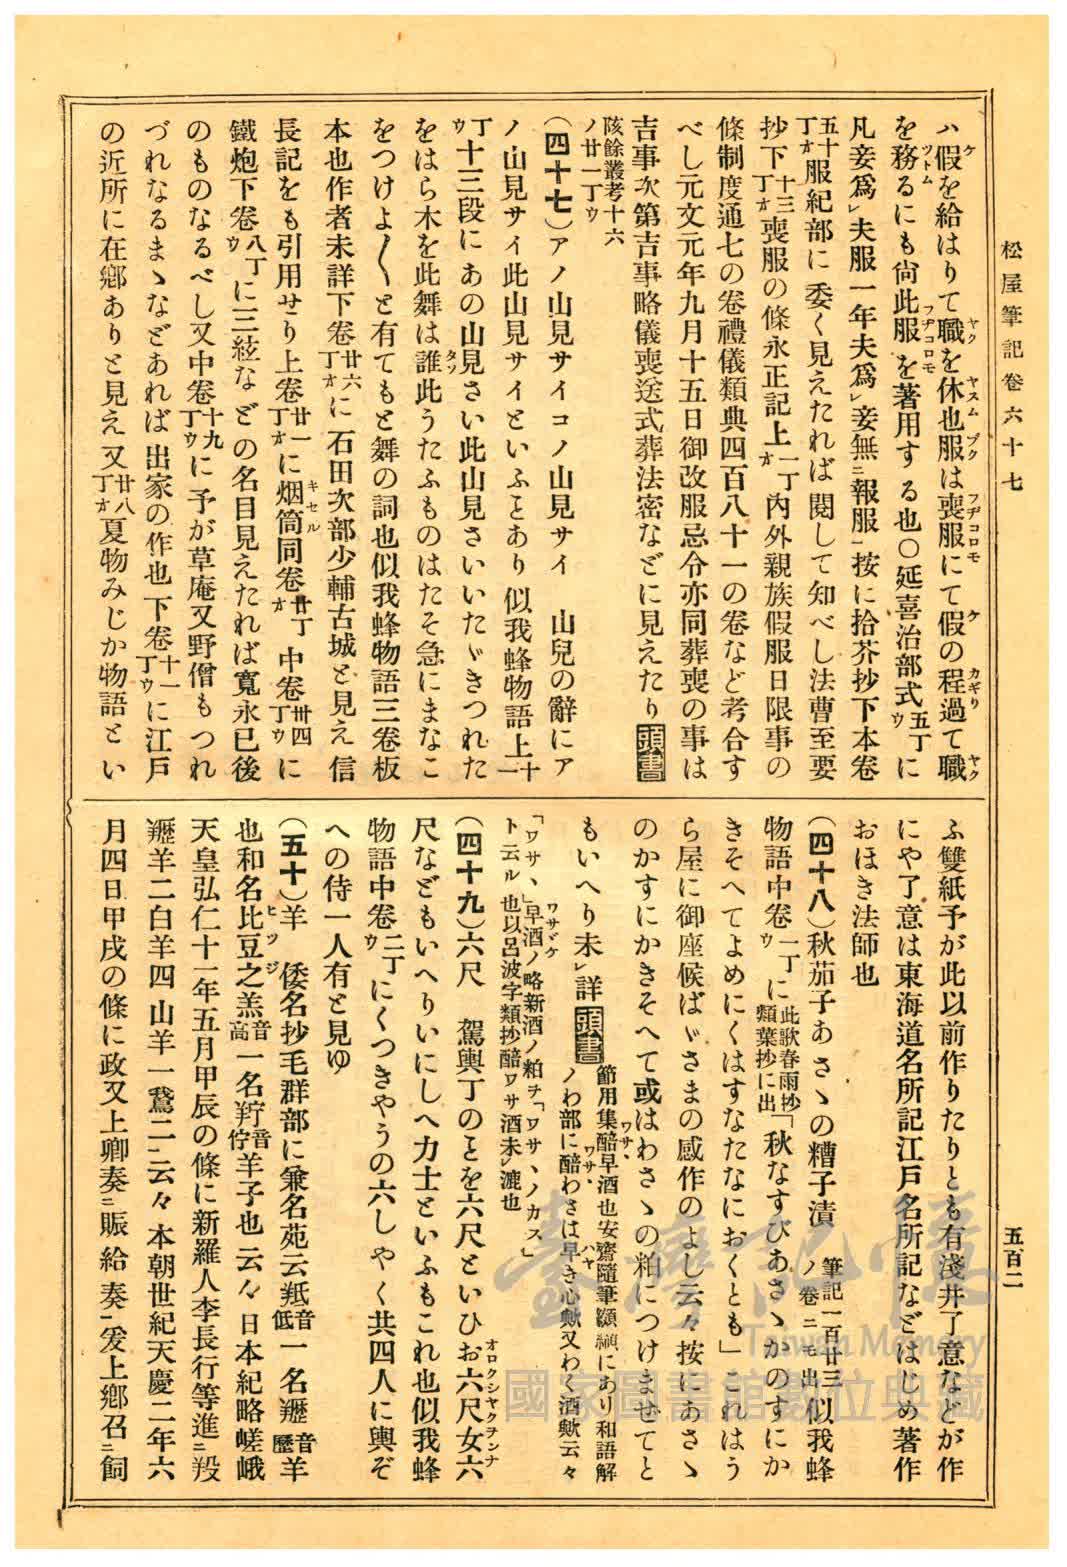 松屋筆記卷六十七
五百二
ハ假を給はりて職を休也服は喪服にて假の程過て職
を務るにも尙此服を著用する也○延喜治部式五丁ウに
凡妾爲レ夫服一年夫爲レ妾無ニ報服一按に拾芥抄下本卷
五十丁オ服紀部に委く見えたれば閱して知べし法曹至要
抄下十三丁オ喪服の條永正記上一丁オ內外親族假服日限事の
條制度通七の卷禮儀類典四百八十一の卷など考合す
べし元文元年九月十五日御改服忌令亦同葬喪の事は
吉事次第吉事略儀喪送式葬法密などに見えたり頭書
陔餘叢考十六ノ廿一丁ウ
(四十七)アノ山見サイコノ山見サイ 山兒の辭にア
ノ山見サイ此山見サイといふとあり似我蜂物語上十一
丁ウ十三段にあの山見さい此山見さいいたゞきつれた
をはら木を此舞は誰此うたふものはたそ急にまなこ
をつけよ〱と有てもと舞の詞也似我蜂物語三卷板
本也作者未詳下卷廿六丁オに石田次部少輔古城と見え信
長記をも引用せり上卷廿一丁オに烟筒同卷廿丁オ中卷卅四丁ウに
鐵炮下卷八丁ウに三絃などの名目見えたれば寬永已後
のものなるべし又中卷十九丁ウに予が草庵又野僧もつれ
づれなるまゝなどあれば出家の作也下卷十一丁ウに江戶
の近所に在鄉ありと見え又廿八丁オ夏物みじか物語とい
ふ雙紙予が此以前作りたりとも有淺井了意などが作
にや了意は東海道名所記江戶名所記などはじめ著作
おほき法師也
(四十八)秋茄子あさゝの糟子漬 筆記一百廿三ノ卷ニモ出 似我蜂
物語中卷一丁ウに此歌春雨抄類葉抄に出「秋なすびあさゝかのすにか
きそへてよめにくはすなたなにおくとも」これはう
ら屋に御座候ばゞさまの感作のよし云々按にあさゝ
のかすにかきそへて或はわさゝの粕につけまぜてと
もいへり未レ詳頭書節用集醅早酒也安齋隨筆にあり和語解ノわ部に醅わさは早き心歟又わく酒歟云々
「ワサヽ」早酒ノ略新酒ノ粕ヲ「ワサヽノカス」ト云ル也以呂波字類抄醅ワサ酒未レ漉也
(四十九)六尺 駕輿丁のとを六尺といひお六尺女六
尺などもいへりいにしへ力士といふもこれ也似我蜂
物語中卷二丁ウにくつきやうの六しやく共四人に輿ぞ
への侍一人有と見ゆ
(五十)羊 倭名抄毛群部に兼名苑云羝音低一名䍽音歷羊
也和名比豆之羔音高一名羜音佇羊子也云々日本紀略嵯峨
天皇弘仁十一年五月甲辰の條に新羅人李長行等進ニ羖
䍽羊二白羊四山羊一鵞二一云々本朝世紀天慶二年六
月四日甲戌の條に政又上卿奏ニ賑給奏一爰上鄕召ニ飼
臺灣記憶
Taiwan Memory
國家圖書館數位典藏